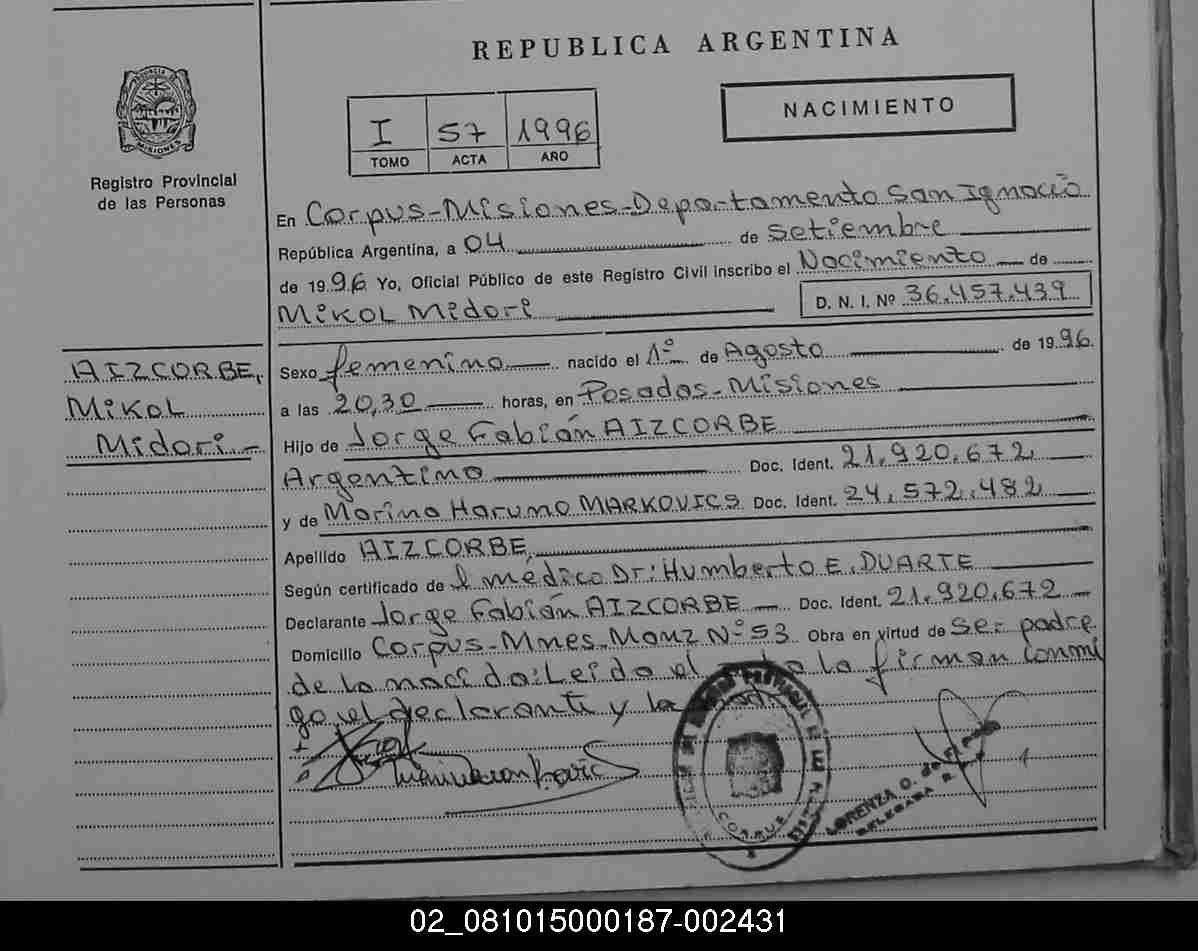 REPUBLICA ARGENTINA
PROVINCIA DE MISIONES
Registro Provincial
de las Personas
I 57 1996
TOMO ACTA AÑO
NACIMIENTO
En Corpus-Misiones-Departamento San Ignacio
República Argentina, a 04 de Setiembre
de 1996 Yo, Oficial Público de este Registro Civil inscribo el Nacimiento de
Mikol Midori D. N. I. Nº 36.457.439
AIZCORBE,
Mikol
Midori-
Sexo femenino nacido el 1º de Agosto de 1996.
a las 20,30 horas, en Posadas-Misiones
Hijo de Jorge Fabián AIZCORBE
Argentino Doc. Ident. 21.920.672
y de Marina Haruno MARKOVICS Doc. Ident. 24.572.482
Apellido AIZCORBE
Según certificado de el médico Dr: Humberto E. DUARTE
Declarante Jorge Fabián AIZCORBE Doc. Ident. 21.920.672
Domicilio Corpus-Mnes. Manz Nº 53 Obra en virtud de ser padre
de la nacida: Leido el la firman conmi
go, el declarante y la
CORPUS
LORENZA O. de
DELEGADA
02_081015000187-002431